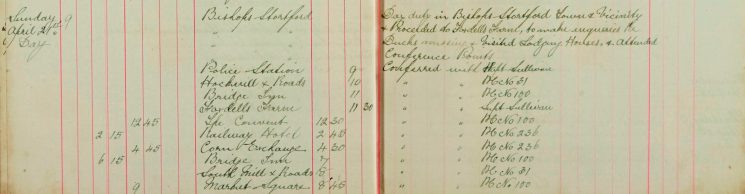 Sunday 9 Bishops Stortford Day duty in Bishops Stortford Town & Vicinity
April 21st " " & Proceeded to Twyfords Farm, to make enquiries re
Day Ducks missing & Visited Lodging Houses, & attended
Conference Points
Police Station 9 Conferred with Supt Sullivan
Hockerill & Roads 10 " PC No 31
Bridge Inn 11 " PC No 100
Farm 11 30 " Supt Sullivan
12 45 Convent 12 30 " PC No 100
2 15 Railway Hotel 2 45 " PC No 236
4 45 Corn Exchange 4 30 " PC No 236
6 15 Bridge Inn 7 " PC No 100
South Mill & Roads 8 " PC No 31
9 Market Square 8 45 " PC No 100